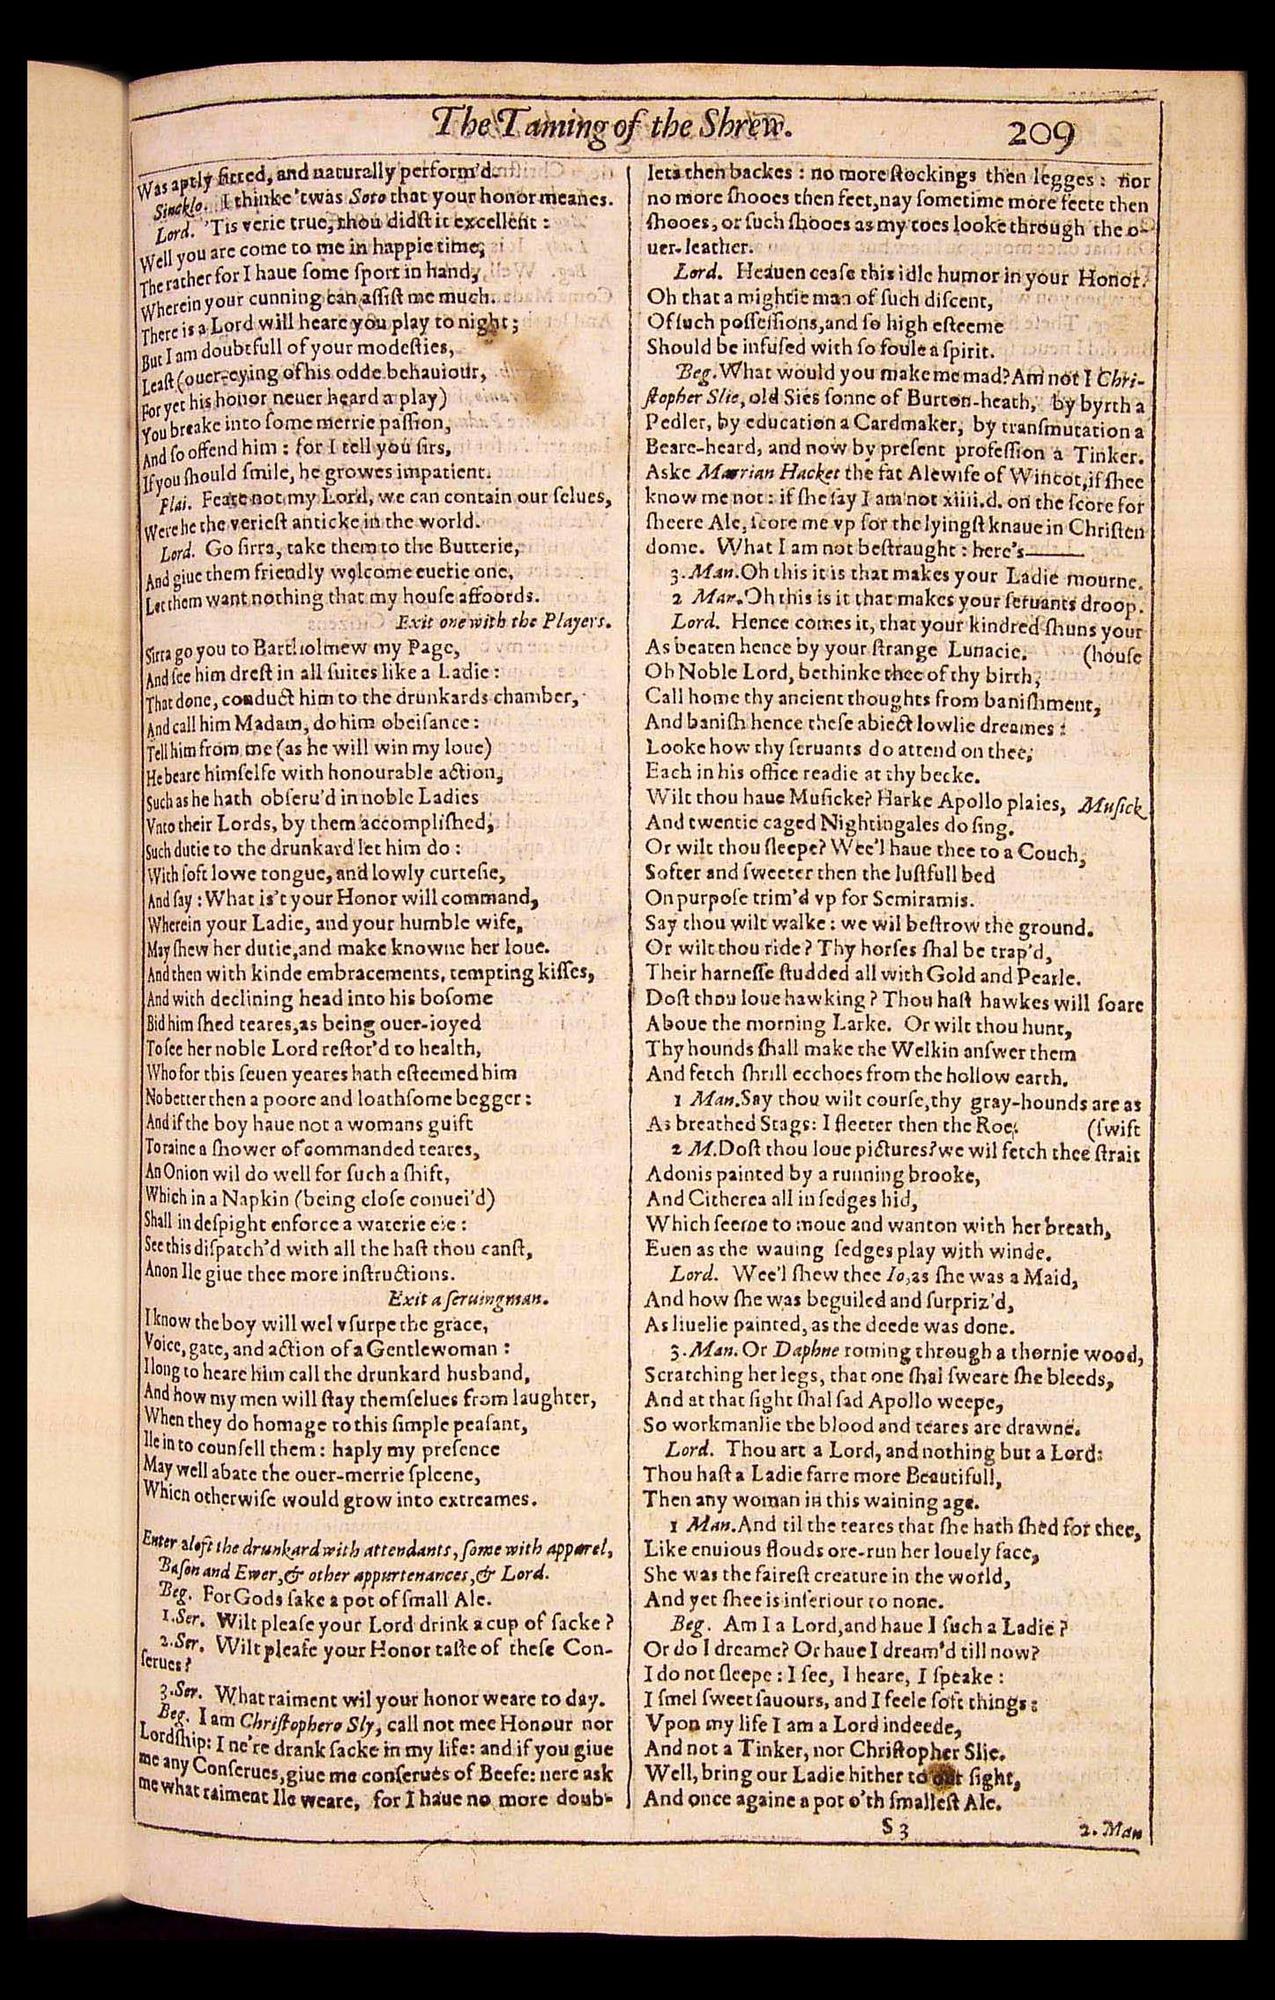 The Taming of the Shrew.
209
Was aptly fitted, and naturally perform'd.
Sincklo. I thinke 'twas Soto that your honor meanes.
Lord. 'Tis verie true, thou didſt it excellent:
Well you are come to me in happie time,
The rather for I haue ſome ſport in hand,
Wherein your cunning can aſſiſt me much.
There is a Lord will heare you play to night;
But I am doubtfull of your modeſties,
Leaſt (ouer-eying of his odde behauiour,
For yet his honor neuer heard a play)
You breake into ſome merrie paſſion,
And ſo offend him: for I tell you ſirs,
If you ſhould ſmile, he growes impatient.
Plai. Feare not my Lord, we can contain our ſelues,
Were he the verieſt anticke in the world.
Lord. Go ſirra, take them to the Butterie,
And giue them friendly welcome euerie one,
Let them want nothing that my houſe affoords.
Exit one with the Players.
Sirra go you to Bartholmew my Page,
And ſee him dreſt in all ſuites like a Ladie:
That done, conduct him to the drunkards chamber,
And call him Madam, do him obeiſance:
Tell him from me (as he will win my loue)
He beare himſelfe with honourable action,
Such as he hath obſeru'd in noble Ladies
Vnto their Lords, by them accompliſhed,
Such dutie to the drunkard let him do:
With ſoft lowe tongue, and lowly curteſie,
And ſay: What is't your Honor will command,
Wherein your Ladie, and your humble wife,
May ſhew her dutie, and make knowne her loue.
And then with kinde embracements, tempting kiſſes,
And with declining head into his boſome
Bid him ſhed teares, as being ouer-ioyed
To ſee her noble Lord reſtor'd to health,
Who for this ſeuen yeares hath eſteemed him
No better then a poore and loathſome begger:
And if the boy haue not a womans guift
To raine a ſhower of commanded teares,
An Onion wil do well for ſuch a ſhift,
Which in a Napkin (being cloſe conuei'd)
Shall in deſpight enforce a waterie eie:
See this diſpatch'd with all the haſt thou canſt,
Anon Ile giue thee more inſtructions.
Exit a ſeruingman.
I know the boy will wel vſurpe the grace,
Voice, gate, and action of a Gentlewoman:
I long to heare him call the drunkard husband,
And how my men will ſtay themſelues from laughter,
When they do homage to this ſimple peaſant,
Ile in to counſell them: haply my preſence
May well abate the ouer-merrie ſpleene,
Which otherwiſe would grow into extreames.
Enter aloft the drunkard with attendants, ſome with apparel,
Baſon and Ewer, & other appurtenances, & Lord.
Beg. For Gods ſake a pot of ſmall Ale.
1.Ser. Wilt pleaſe your Lord drink a cup of ſacke?
2.Ser. Wilt pleaſe your Honor taſte of theſe Con-
ſerues?
3.Ser. What raiment wil your honor weare to day.
Beg. I am Chriſtophero Sly, call not mee Honour nor
Lordſhip: I ne're drank ſacke in my life: and if you giue
me any Conſerues, giue me conſerues of Beefe: nere ask
me what raiment Ile weare, for I haue no more doub-
lets then backes: no more ſtockings then legges: nor
no more ſhooes then feet, nay ſometime more feete then
ſhooes, or ſuch ſhooes as my toes looke through the o-
uer-leather.
Lord. Heauen ceaſe this idle humor in your Honor.
Oh that a mightie man of ſuch diſcent,
Of ſuch poſſeſſions, and ſo high eſteeme
Should be infuſed with ſo foule a ſpirit.
Beg. What would you make me mad? Am not I Chri-
ſtopher Slie, old Sies ſonne of Burton-heath, by byrth a
Pedler, by education a Cardmaker, by tranſmutation a
Beare-heard, and now by preſent profeſſion a Tinker.
Aske Marrian Hacket the fat Alewife of Wincot, if ſhee
know me not: if ſhe ſay I am not xiiii.d. on the ſcore for
ſheere Ale, ſcore me vp for the lyingſt knaue in Chriſten
dome. What I am not beſtraught: here's———
3.Man. Oh this it is that makes your Ladie mourne.
2 Man. Oh this is it that makes your ſeruants droop.
Lord. Hence comes it, that your kindred ſhuns your
As beaten hence by your ſtrange Lunacie. (houſe
Oh Noble Lord, bethinke thee of thy birth,
Call home thy ancient thoughts from baniſhment,
And baniſh hence theſe abiect lowlie dreames:
Looke how thy ſeruants do attend on thee,
Each in his office readie at thy becke.
Wilt thou haue Muſicke? Harke Apollo plaies, Muſick
And twentie caged Nightingales do ſing.
Or wilt thou ſleepe? Wee'l haue thee to a Couch,
Softer and ſweeter then the luſtfull bed
On purpoſe trim'd vp for Semiramis.
Say thou wilt walke: we wil beſtrow the ground.
Or wilt thou ride? Thy horſes ſhal be trap'd,
Their harneſſe ſtudded all with Gold and Pearle.
Doſt thou loue hawking? Thou haſt hawkes will ſoare
Aboue the morning Larke. Or wilt thou hunt,
Thy hounds ſhall make the Welkin anſwer them
And fetch ſhrill ecchoes from the hollow earth.
1 Man. Say thou wilt courſe, thy gray-hounds are as
As breathed Stags: I fleeter then the Roe. (ſwift
2 M. Doſt thou loue pictures? we wil fetch thee ſtrait
Adonis painted by a running brooke,
And Citherea all in ſedges hid,
Which ſeeme to moue and wanton with her breath,
Euen as the wauing ſedges play with winde.
Lord. Wee'l ſhew thee Io, as ſhe was a Maid,
And how ſhe was beguiled and ſurpriz'd,
As liuelie painted, as the deede was done.
3.Man. Or Daphne roming through a thornie wood,
Scratching her legs, that one ſhal ſweare ſhe bleeds,
And at that ſight ſhal ſad Apollo weepe,
So workmanlie the blood and teares are drawne.
Lord. Thou art a Lord, and nothing but a Lord:
Thou haſt a Ladie farre more Beautifull,
Then any woman in this waining age.
1 Man. And til the teares that ſhe hath ſhed for thee,
Like enuious flouds ore-run her louely face,
She was the faireſt creature in the world,
And yet ſhee is inferiour to none.
Beg. Am I a Lord, and haue I ſuch a Ladie?
Or do I dreame? Or haue I dream'd till now?
I do not ſleepe: I ſee, I heare, I ſpeake:
I ſmel ſweet ſauours, and I feele ſoft things:
Vpon my life I am a Lord indeede,
And not a Tinker, nor Chriſtopher Slie.
Well, bring our Ladie hither to our ſight,
And once againe a pot o'th ſmalleſt Ale.
S 3
2. Man